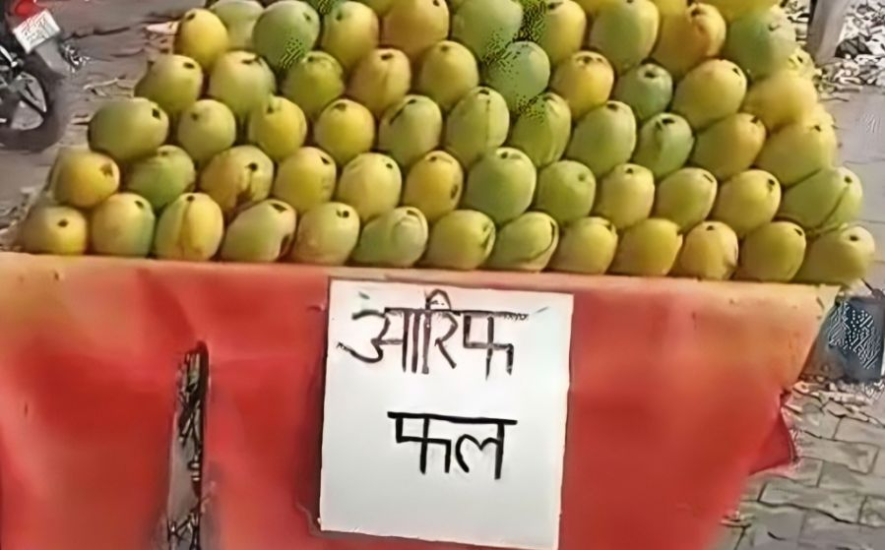 आरिफ
फल